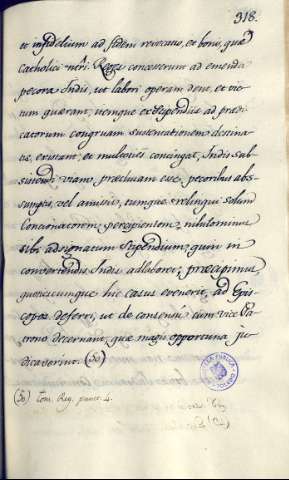 318.
et infidelium ad fidem revocatio, et bonis, quæ
Catholici nri. Reges concesserunt ad emenda
pecora Indis, ut labori operam dent, et vic
tum quærant, itemque ex stipendiis ad prædi
catorum congruam sustentationem destina
tis, existant, et multoties contingat, Indis sub-
sistendi viam, præclusam esse, pecoribus abs-
sumptis, vel amissis, tumque relinqui solum
Concionatorem percipientem, nihilominus
sibi adsignatum stipendium, quin in
convertendis Indis adlaboret; præcipimus,
quotiescumque hic casus evenerit, ad Epis
copos deferri, ut de consensu cum vice Pa
trono decernant, quæ magis opportuna ju
dicaverint. (50)
(50) Tom. Reg. punct. 4.